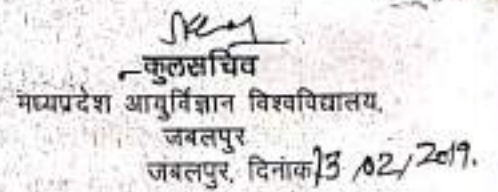 कुलसचिव
मध्यप्रदेश आयुर्विज्ञान विश्वविद्यालय,
जबलपुर
जबलपुर, दिनांक 13/02/2019.